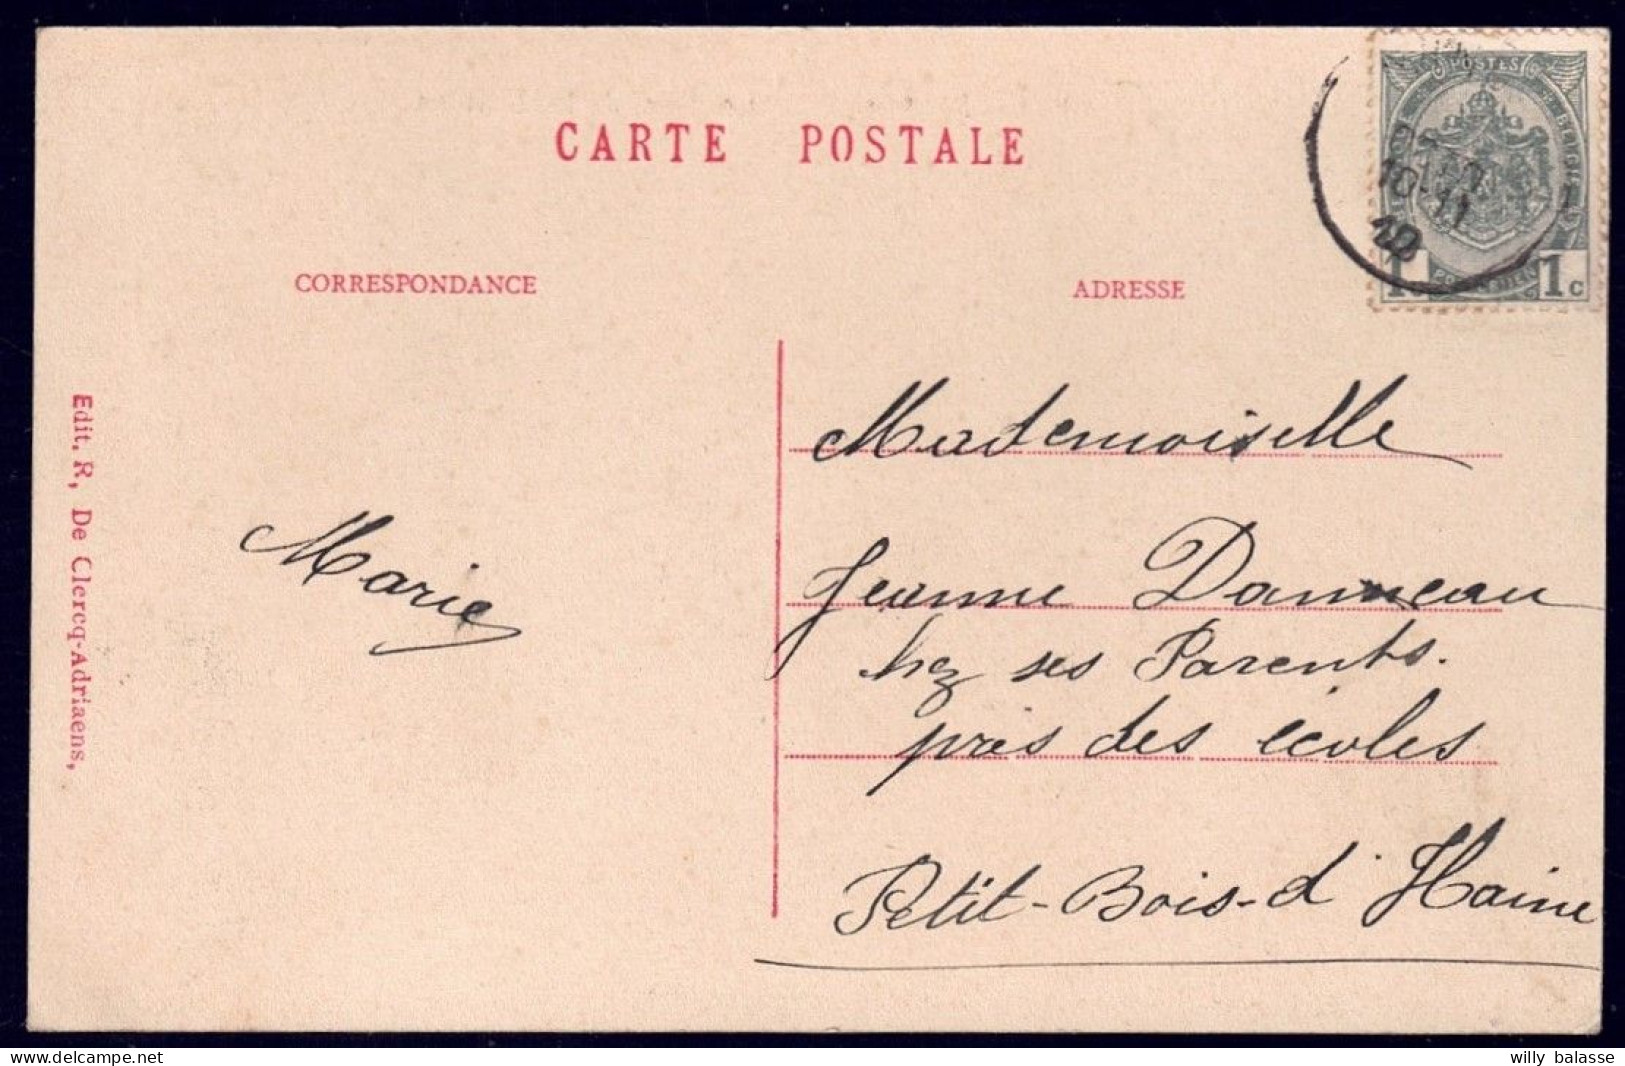 CARTE POSTALE
CORRESPONDANCE
ADRESSE
POSTES
1c
Edit. R, De Clercq-Adriaens,
Marie
Mademoiselle
Jeanne Danneau
chez ses Parents.
près des écoles
Petit-Bois-d'Haine
delcampe.net
willy balasse